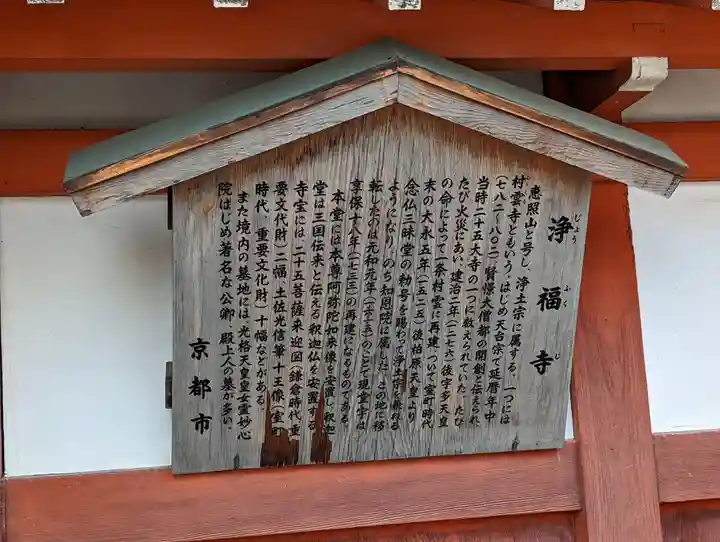 浄福寺
じょう ふく じ
恵照山と号し、浄土宗に属する。一つには
村雲寺ともいう。はじめ天台宗で延暦年中
(七八二-八〇二)賢憬大僧都の開創と伝えられ
当時二十五大寺の一つに数えられていた。たび
たび火災にあい、建治二年(一二七六)後宇多天皇
の命によって一条村雲に再建、ついで室町時代
末の大永五年(一五二五)後柏原天皇より
念仏三昧堂の勅号を賜わって浄土宗を兼ねる
ようになり、のち知恩院に属した。この地に移
転したのは元和元年(一六一五)のことで現堂宇は
享保十八年(一七三三)の再建になるものである。
本堂には本尊阿弥陀如来像を安置し、釈迦
堂は三国伝来と伝える釈迦仏を安置する。
寺宝には、二十五菩薩来迎図(鎌倉時代、重
要文化財)二幅、土佐光信筆十王像(室町
時代、重要文化財)十幅などがある。
また境内の墓地には、光格天皇皇女霊妙心
院はじめ著名な公卿、殿上人の墓が多い。
京都市